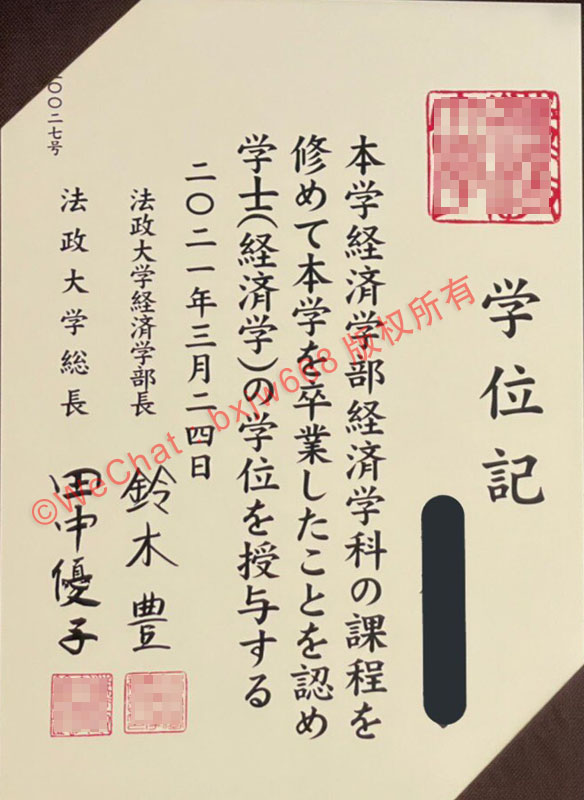 学位記
本学経済学部経済学科の課程を
修めて本学を卒業したことを認め
学士(経済学)の学位を授与する
二〇二一年三月二四日
法政大学経済学部長 鈴木豊
法政大学総長 田中優子
〇〇二七号
©WeChat : bxjw688 版权所有